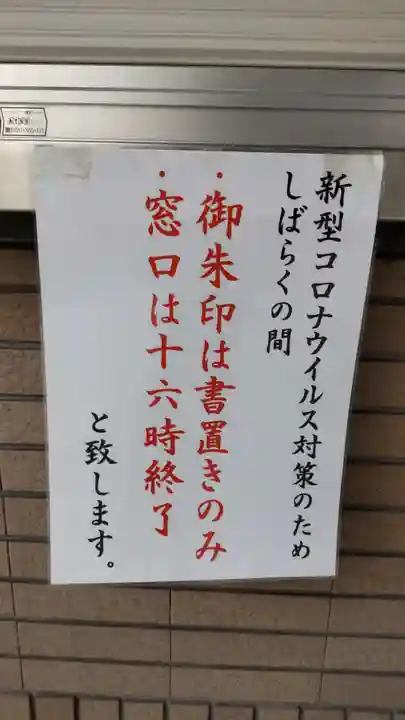 新型コロナウイルス対策のため
しばらくの間
・御朱印は書置きのみ
・窓口は十六時終了
と致します。